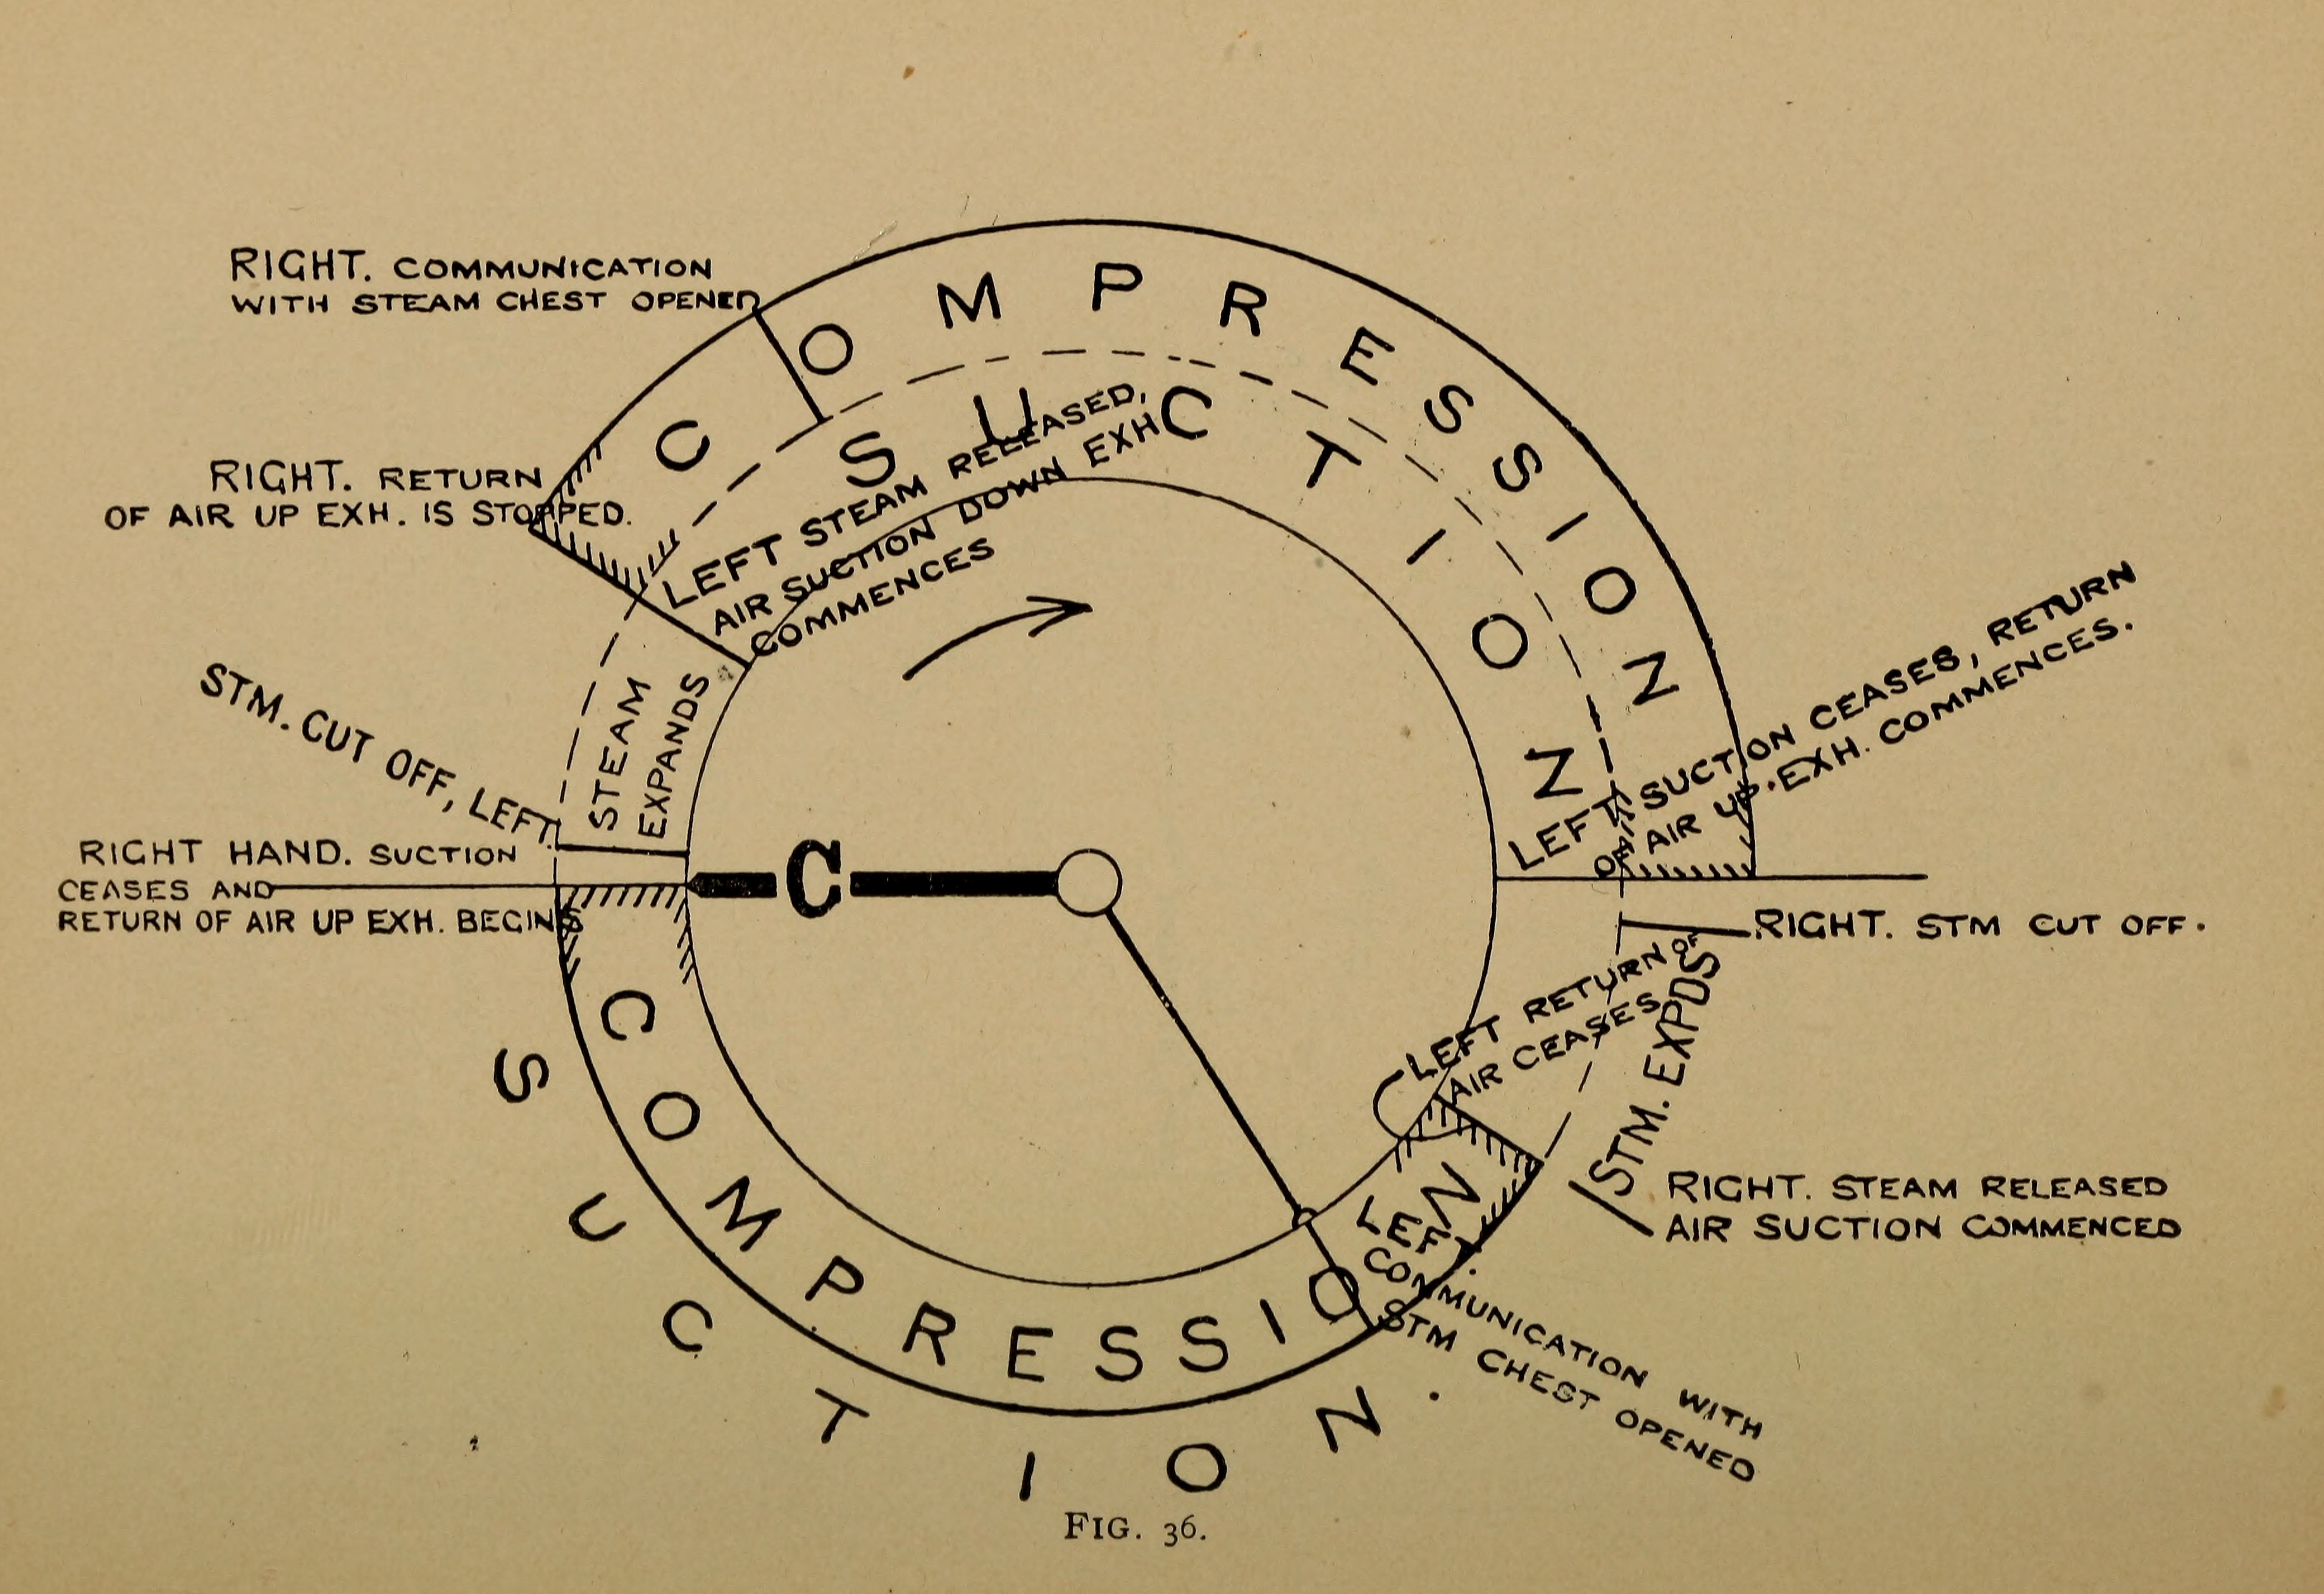 RIGHT. COMMUNICATION
WITH STEAM CHEST OPENED
COMPRESSION
SUCTION
RIGHT. RETURN
OF AIR UP EXH. IS STOPPED.
LEFT STEAM RELEASED,
AIR SUCTION DOWN EXH
COMMENCES
STEAM
EXPANDS
STM. CUT OFF, LEFT.
RIGHT HAND. SUCTION
CEASES AND
RETURN OF AIR UP EXH. BEGINS
C
LEFT SUCTION CEASES, RETURN
OF AIR UP. EXH. COMMENCES.
RIGHT. STM CUT OFF.
LEFT RETURN OF
AIR CEASES
STM. EXPDS
RIGHT. STEAM RELEASED
AIR SUCTION COMMENCED
COMPRESSION
LEFT.
COMMUNICATION WITH
STM CHEST OPENED
SUCTION.
FIG. 36.